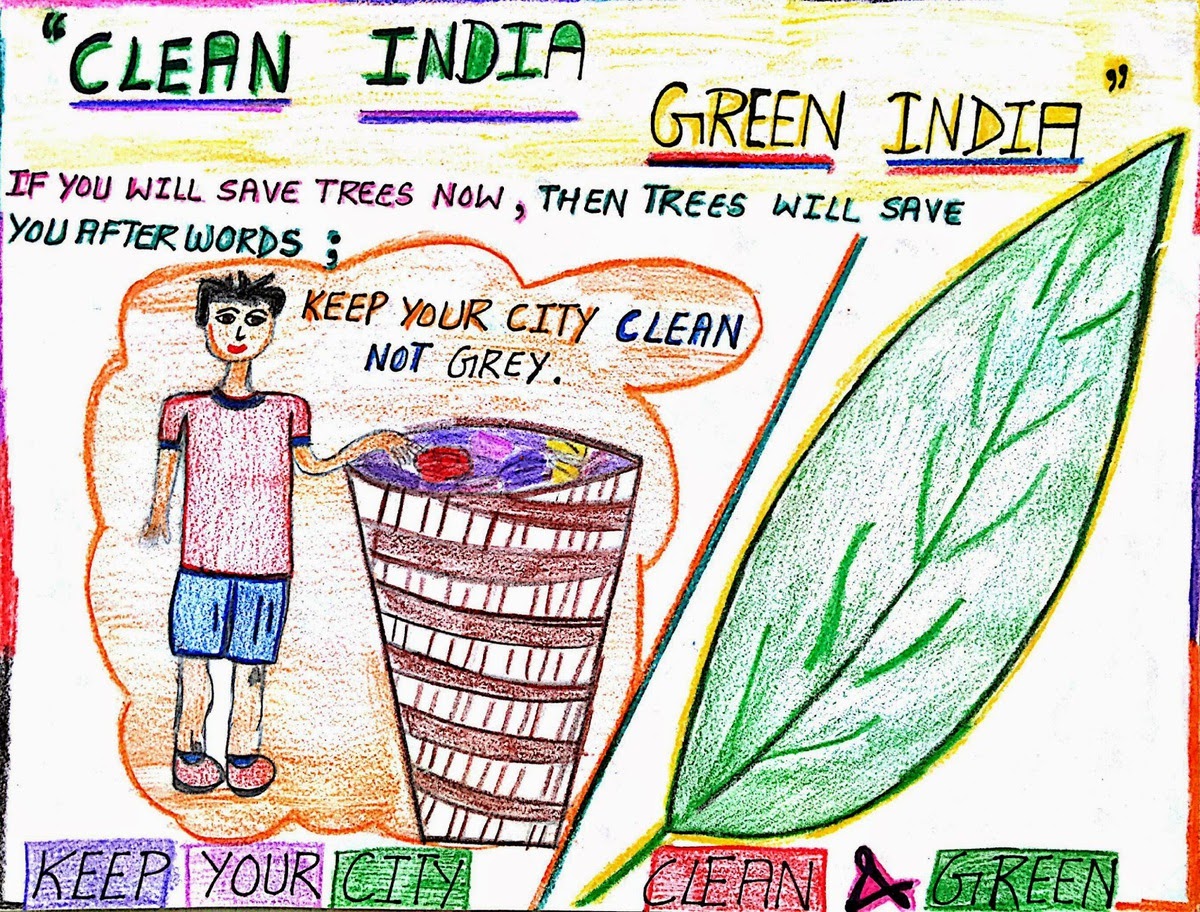 “CLEAN INDIA
GREEN INDIA”
IF YOU WILL SAVE TREES NOW, THEN TREES WILL SAVE
YOU AFTERWORDS ;
KEEP YOUR CITY CLEAN
NOT GREY.
KEEP YOUR CITY CLEAN & GREEN